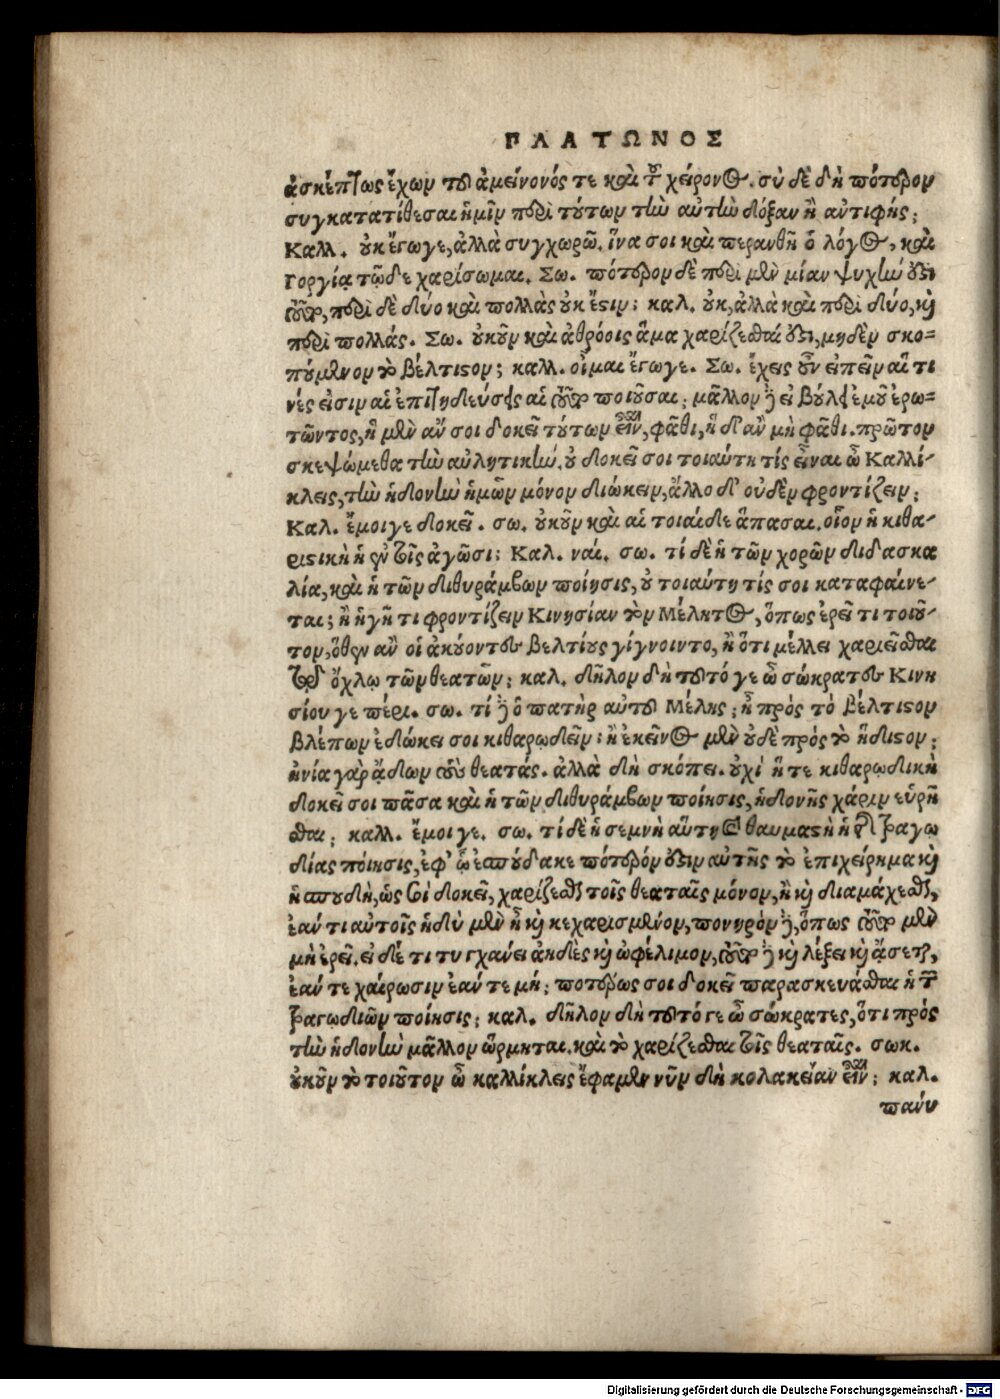 ΠΛΑΤΩΝΟΣ
ἀσκέπτως ἔχων τοῦ ἀμείνονός τε καὶ τοῦ χείρονος. σὺ δὲ δὴ πότερον
συγκατατίθεσαι ἡμῖν περὶ τούτων τὴν αὐτὴν δόξαν ἢ αὐτιφής;
Καλλ. οὐκ ἔγωγε, ἀλλὰ συγχωρῶ. ἵνα σοι καὶ περανθῇ ὁ λόγος, καὶ
Γοργίᾳ τῷδε χαρίσωμαι. Σω. πότερον δὲ περὶ μὲν μίαν ψυχὴν ἔστι
τοῦτο, περὶ δὲ δύο καὶ πολλὰς οὐκ ἔστιν; καλ. οὐκ, ἀλλὰ καὶ περὶ δύο, καὶ
περὶ πολλάς. Σω. οὐκοῦν καὶ ἀθρόοις ἅμα χαρίζεσθαι ἔστι, μηδὲν σκο=
πούμενον τὸ βέλτιστον; καλλ. οἶμαι ἔγωγε. Σω. ἔχεις οὖν εἰπεῖν αἵ τι
νές εἰσιν αἱ ἐπιτηδεύσεις αἱ τοῦτο ποιοῦσαι; μᾶλλον δὲ εἰ βούλει ἐμοῦ ἐρω=
τῶντος, ἣ μὲν ἄν σοι δοκεῖ τούτων εἶναι, φάθι, ἣ δ' ἂν μὴ φάθι. πρῶτον
σκεψώμεθα τὴν αὐλητικήν. οὐ δοκεῖ σοι τοιαύτη τίς εἶναι ὦ Καλλί-
κλεις, τὴν ἡδονὴν ἡμῶν μόνον διώκειν, ἄλλο δ' οὐδὲν φροντίζειν;
Καλ. ἔμοιγε δοκεῖ. σω. οὐκοῦν καὶ αἱ τοιαίδε ἅπασαι. οἷον ἡ κιθα-
ριστικὴ ἡ ἐν τοῖς ἀγῶσι; Καλ. ναί. σω. τί δὲ ἡ τῶν χορῶν διδασκα
λία, καὶ ἡ τῶν διθυράμβων ποίησις, οὐ τοιαύτη τίς σοι καταφαίνε-
ται; ἢ ἡγῇ τι φροντίζειν Κινησίαν τὸν Μέλητος, ὅπως ἐρεῖ τι τοιοῦ-
τον, ὅθεν ἂν οἱ ἀκούοντες βελτίους γίγνοιντο, ἢ ὅτι μέλλει χαριεῖσθαι
τῷ ὄχλῳ τῶν θεατῶν; καλ. δῆλον δὴ τοῦτό γε ὦ σώκρατες Κινη
σίου γε πέρι. σω. τί δὲ ὁ πατὴρ αὐτοῦ Μέλης; ἦ πρὸς τὸ βέλτιστον
βλέπων ἐδόκει σοι κιθαρῳδεῖν; ἢ ἐκεῖνος μὲν οὐδὲ πρὸς τὸ ἥδιστον;
ἠνία γὰρ ᾄδων τοὺς θεατάς. ἀλλὰ δὴ σκόπει. οὐχὶ ἥ τε κιθαρῳδικὴ
δοκεῖ σοι πᾶσα καὶ ἡ τῶν διθυράμβων ποίησις, ἡδονῆς χάριν εὑρῆ
σθαι; καλλ. ἔμοιγε. σω. τί δὲ ἡ σεμνὴ αὕτη καὶ θαυμαστὴ ἡ τῆς τραγῳ
δίας ποίησις, ἐφ' ᾧ ἐσπούδακε πότερόν ἐστιν αὐτῆς τὸ ἐπιχείρημα καὶ
ἡ σπουδὴ, ὡς σοὶ δοκεῖ, χαρίζεσθαι τοῖς θεαταῖς μόνον, ἢ καὶ διαμάχεσθαι,
ἐάν τι αὐτοῖς ἡδὺ μὲν ᾖ καὶ κεχαρισμένον, πονηρὸν δὲ, ὅπως τοῦτο μὲν
μὴ ἐρεῖ. εἰ δέ τι τυγχάνει ἀηδὲς καὶ ὠφέλιμον, τοῦτο δὲ καὶ λέξει καὶ ᾄσεται,
ἐάν τε χαίρωσιν ἐάν τε μή; ποτέρως σοι δοκεῖ παρασκευάσθαι ἡ τῶν
τραγῳδιῶν ποίησις; καλ. δῆλον δὴ τοῦτό γε ὦ σώκρατες, ὅτι πρὸς
τὴν ἡδονὴν μᾶλλον ὥρμηται. καὶ τὸ χαρίζεσθαι τοῖς θεαταῖς. σωκ.
οὐκοῦν τὸ τοιοῦτον ὦ καλλίκλεις ἔφαμεν νῦν δὴ κολακείαν εἶναι; καλ.
πάνυ
Digitalisierung gefördert durch die Deutsche Forschungsgemeinschaft - DFG